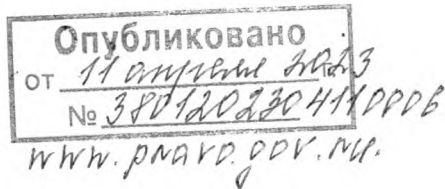 Опубликовано
от 11 апреля 2023
№ 3801202304110006
www.pravo.gov.ru.